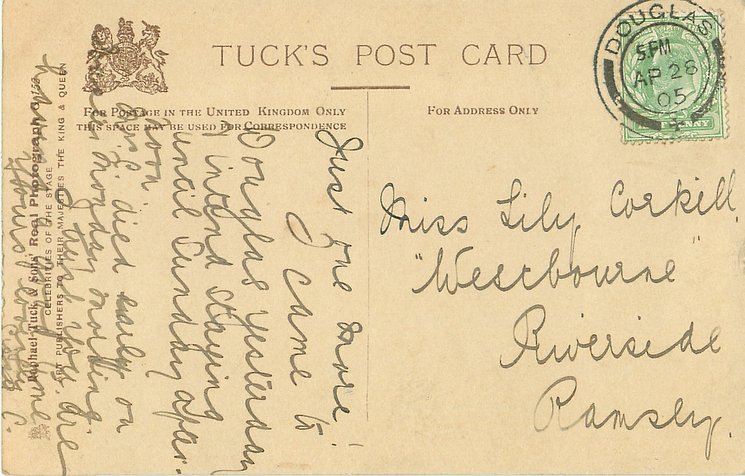 TUCK'S POST CARD
FOR POSTAGE IN THE UNITED KINGDOM ONLY
THIS SPACE MAY BE USED FOR CORRESPONDENCE
FOR ADDRESS ONLY
DOUGLAS
5. PM
AP 28
05
Miss Lily Corkill,
"Westbourne"
Riverside
Ramsey.
Just one more!
I came to
Douglas yesterday
I intend staying
until Sunday after-
noon.
Mrs C. died early on
Monday morning.
I hope you are
having a good time
Yours lovingly
C.
Raphael Tuck & Sons' Real Photograph
CELEBRITIES OF THE STAGE
ART PUBLISHERS TO THEIR MAJESTIES THE KING & QUEEN